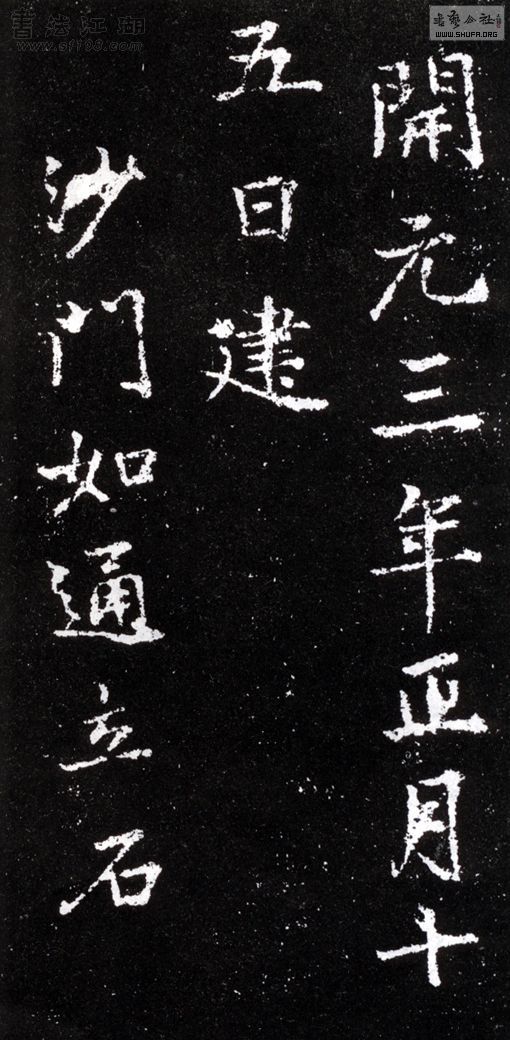 開元三年正月十
五日建
沙門如通立石
書法江湖
www.sf108.com
WWW.SHUFA.ORG